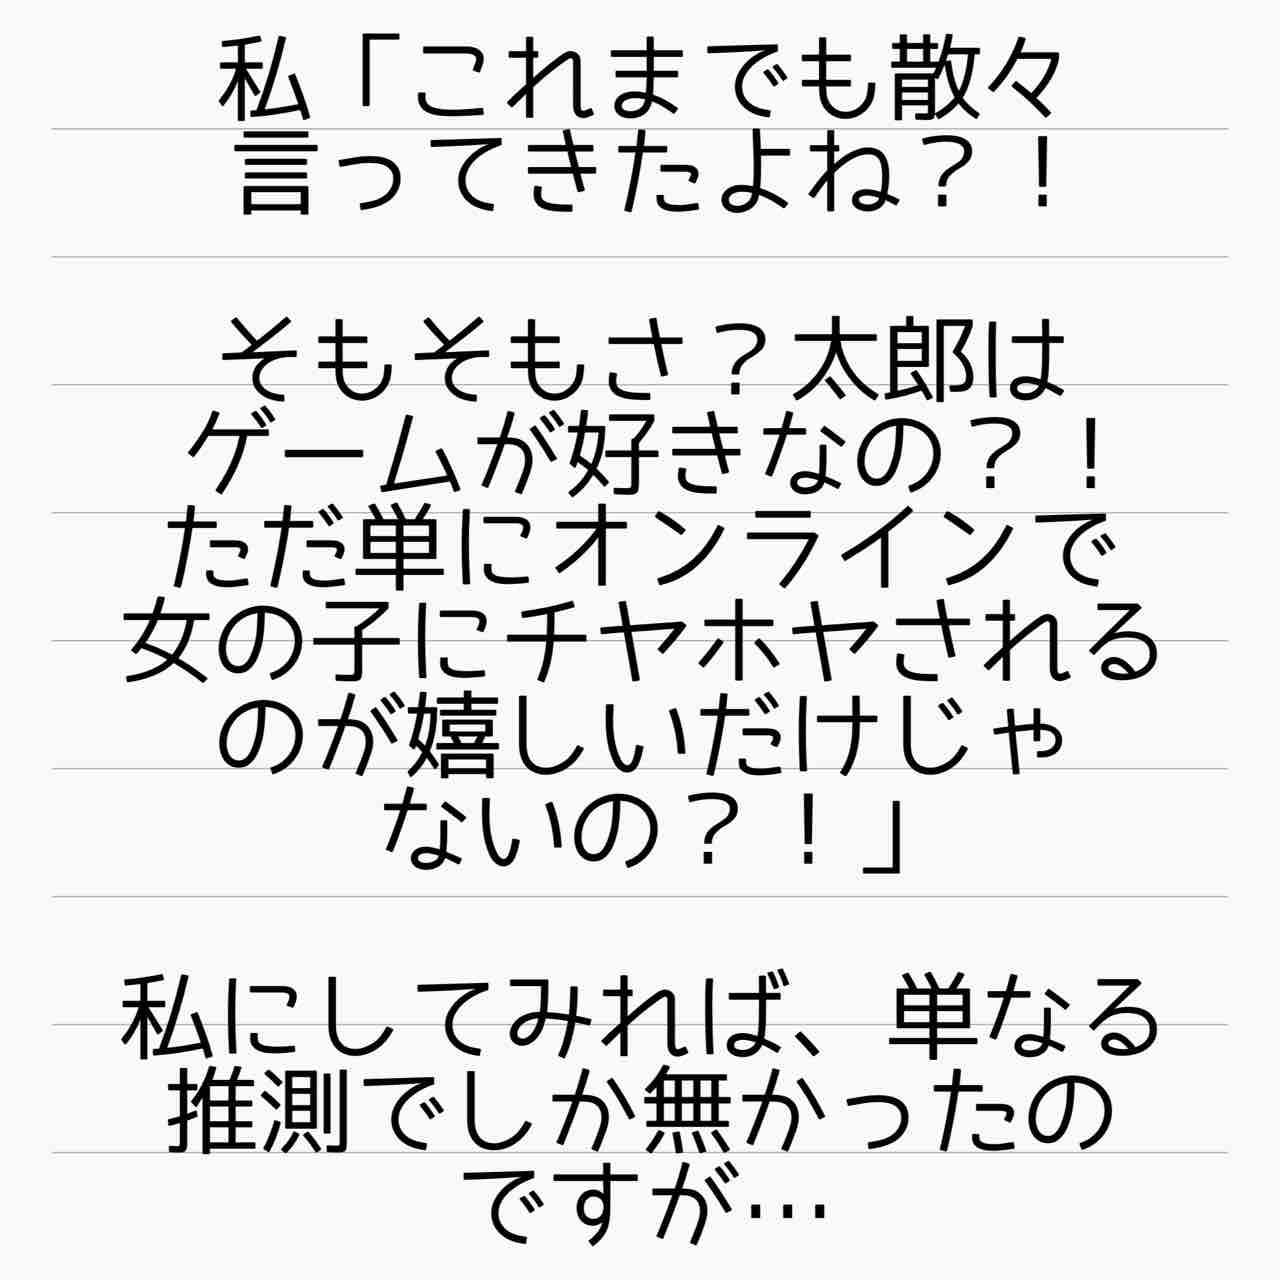 私「これまでも散々
言ってきたよね？！
そもそもさ？太郎は
ゲームが好きなの？！
ただ単にオンラインで
女の子にチヤホヤされる
のが嬉しいだけじゃ
ないの？！」
私にしてみれば、単なる
推測でしか無かったの
ですが…